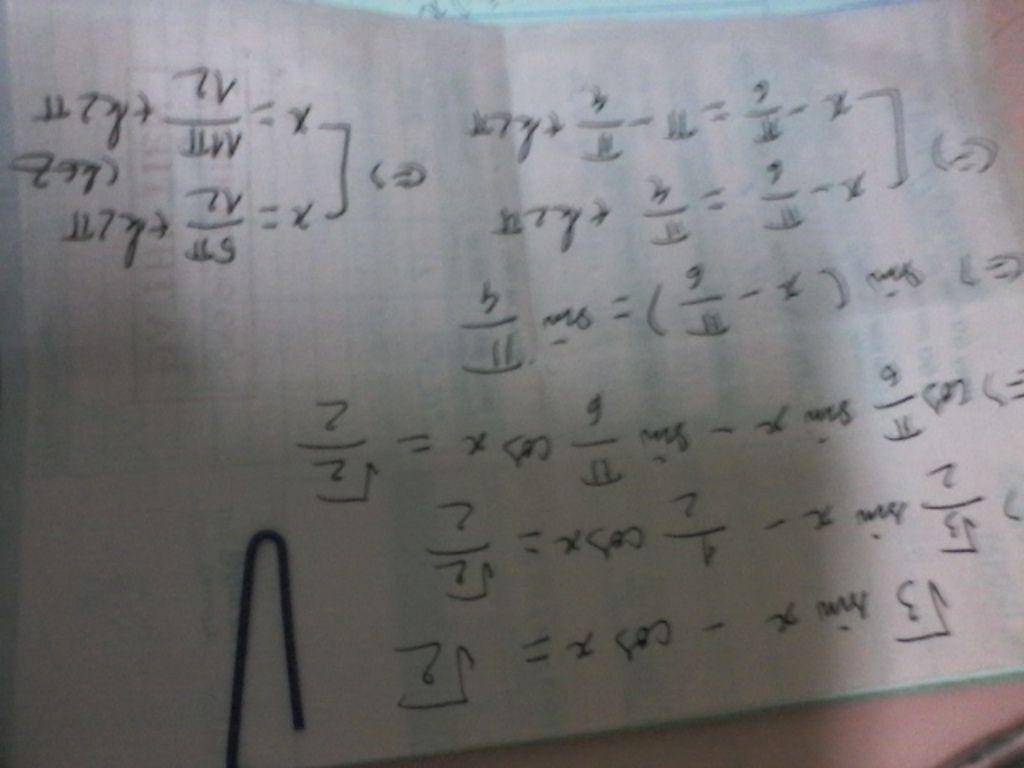 √3 sin x - cos x = √2
⇔ √3/2 sin x - 1/2 cos x = √2/2
⇔ cos π/6 sin x - sin π/6 cos x = √2/2
⇔ sin (x - π/6) = sin π/4
⇔ [ x - π/6 = π/4 + k2π
x - π/6 = π - π/4 + k2π
⇔ [ x = 5π/12 + k2π
(k∈Z
x = 11π/12 + k2π